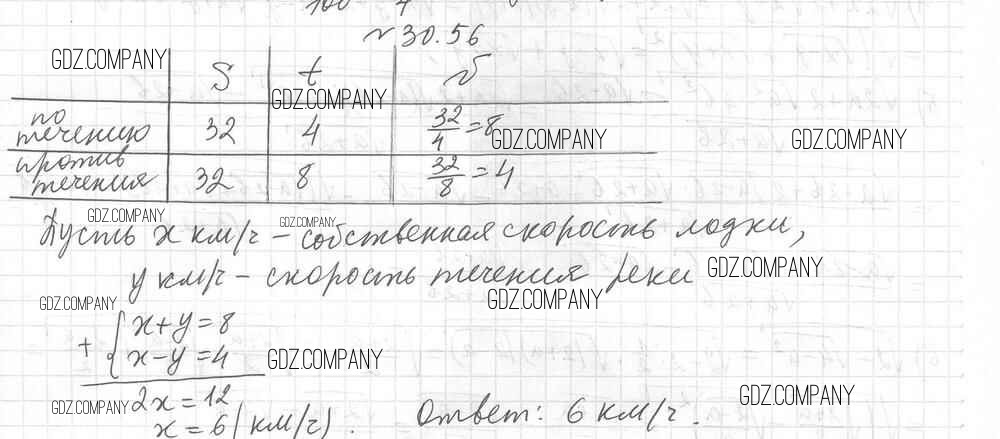 N 30.56
GDZ.COMPANY S t v
GDZ.COMPANY
по течению 32 4 32/4 = 8 GDZ.COMPANY GDZ.COMPANY
против течения 32 8 32/8 = 4
GDZ.COMPANY GDZ.COMPANY
Пусть x км/ч – собственная скорость лодки,
y км/ч – скорость течения реки GDZ.COMPANY
GDZ.COMPANY GDZ.COMPANY
+ { x+y=8
x–y=4 GDZ.COMPANY
GDZ.COMPANY 2x=12 GDZ.COMPANY
x=6(км/ч). Ответ: 6 км/ч.